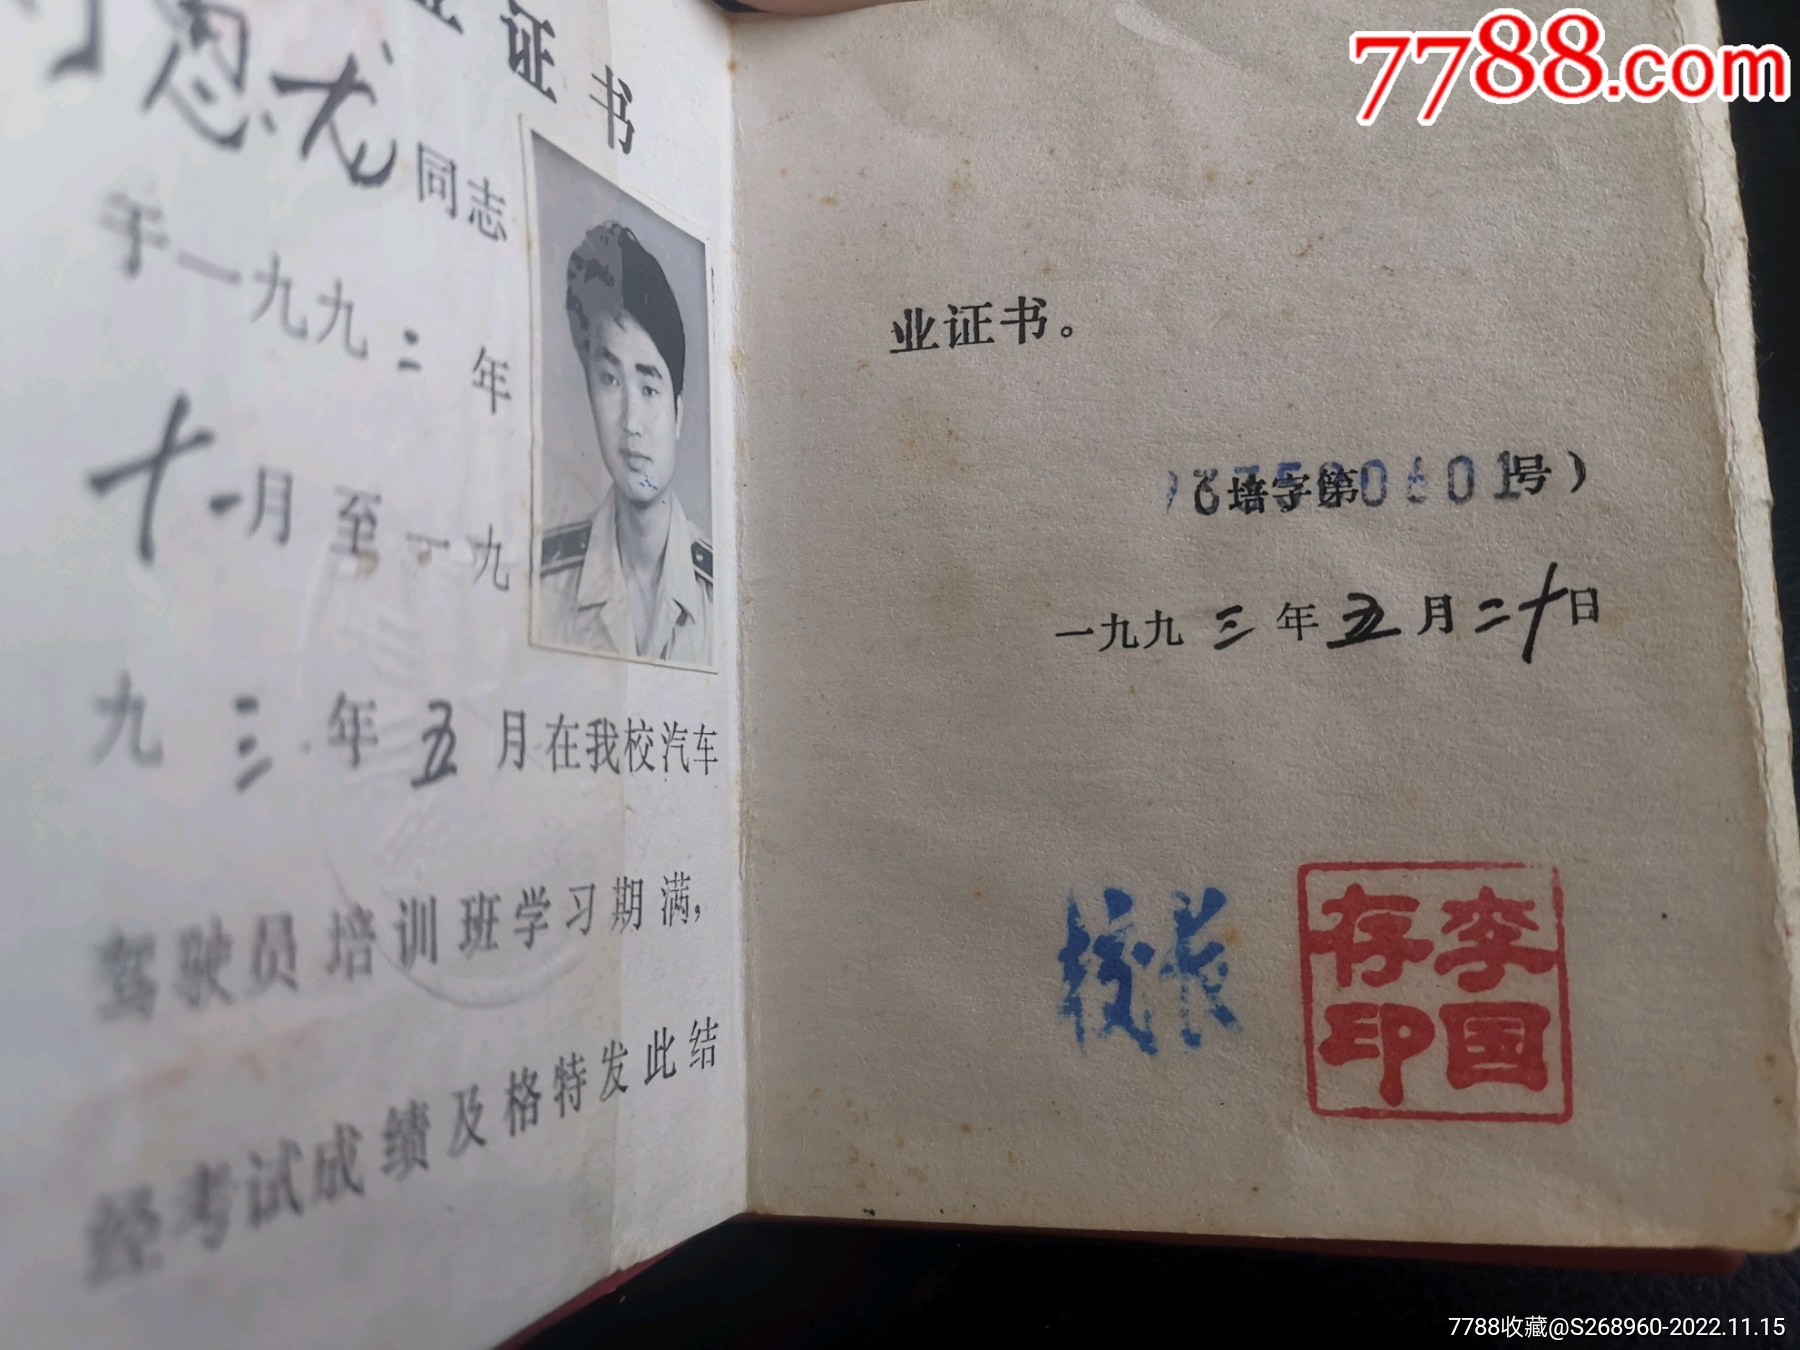 7788.com
业证书
恩龙同志
于一九九二年
十一月至一九
九三年五月在我校汽车
驾驶员培训班学习期满，
经考试成绩及格特发此结
业证书。
培字第 号）
一九九三年五月二十日
校长
李国存印
7788收藏@S268960-2022.11.15